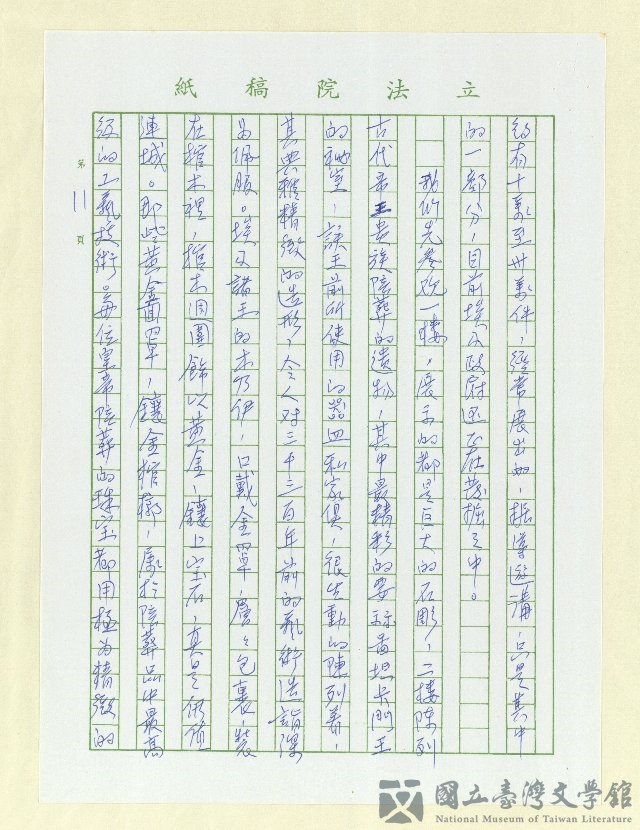 立法院稿紙
約有十萬至卅萬件，經常展出的，據導遊講，只是其中
的一部分，目前埃及政府還在發掘之中。
我們先參觀一樓，展示的都是巨大的石彫，二樓陳列
古代帝王貴族陪葬的遺物，其中最精彩的要算圖坦卡門王
的秘室，該王前所使用的器皿和家俱，很生動的陳列着，
其典雅精緻的造形，令人对三千三百年前的藝術造詣深
為佩服。埃及諸王的木乃伊，口戴金罩，層々包裹，裝
在棺木裡，棺木週圍飾以黃金，鑲上宝石，真是價值
連城。那些黃金面罩，鑲金棺槨，屬於陪葬品中最高
級的工藝技術。每位皇帝陪葬的珠宝都用極為精緻的
第11頁
國立臺灣文學館
National Museum of Taiwan Literature